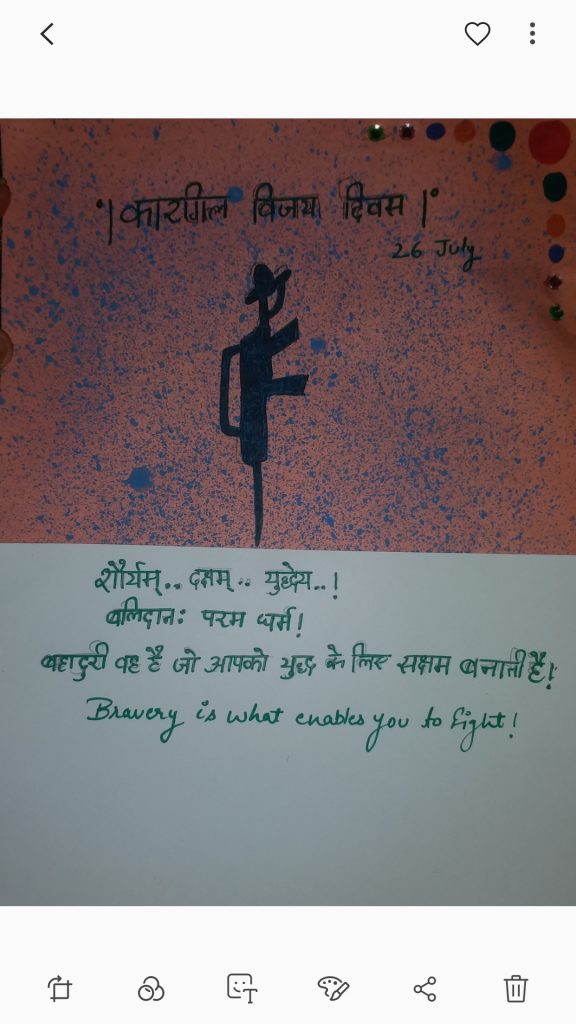 ।कारगिल विजय दिवस।
26 July
शौर्यम्.. दक्षम्.. युद्धेय..!
बलिदानः परम धर्म!
बहादुरी वह है जो आपको युद्ध के लिए सक्षम बनाती है!
Bravery is what enables you to fight!